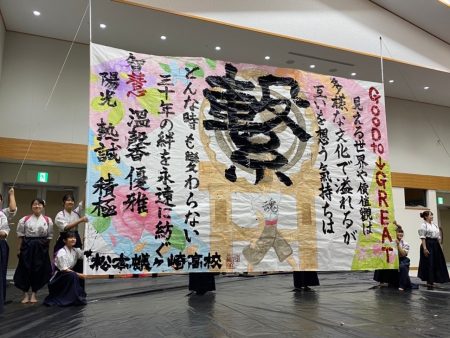 GOOD to ↓ GREAT
見える世界や価値観は
多様な文化で溢れるが
互いを想う気持ちは
繋
魂
どんな時も変わらない
三十年の絆を永遠に紡ぐ
智慧 温馨 優雅
陽光 熱誠 積極
松本蟻ヶ崎高校